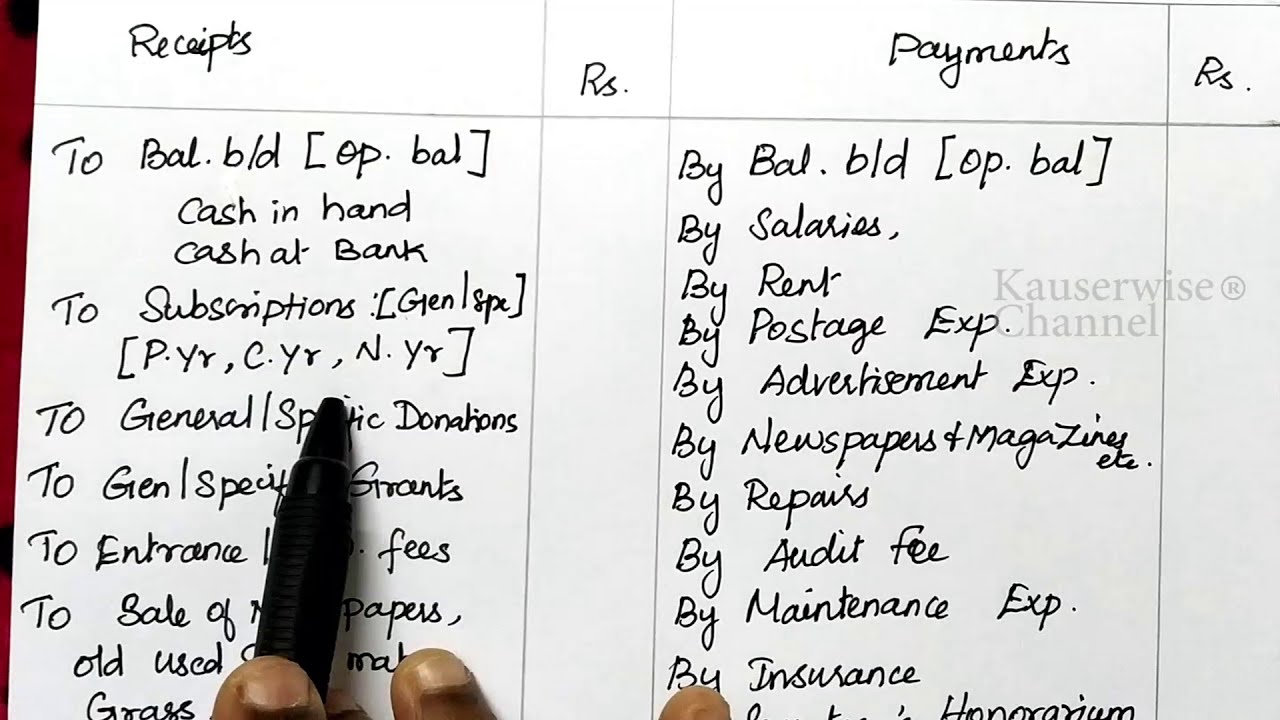 Receipts
Rs.
Payments
Rs.
To Bal. b/d [Op. bal]
Cash in hand
Cash at Bank
To Subscriptions:[Gen/Spe]
[P.Yr, C.Yr, N.Yr]
To General/Specific Donations
To Gen/Specific Grants
To Entrance / fees
To Sale of papers,
old used
Grass
By Bal. b/d [Op. bal]
By Salaries,
By Rent
By Postage Exp.
By Advertisement Exp.
By Newspapers & Magazines
etc.
By Repairs
By Audit fee
By Maintenance Exp.
By Insurance
Honorarium
Kauserwise®
Channel